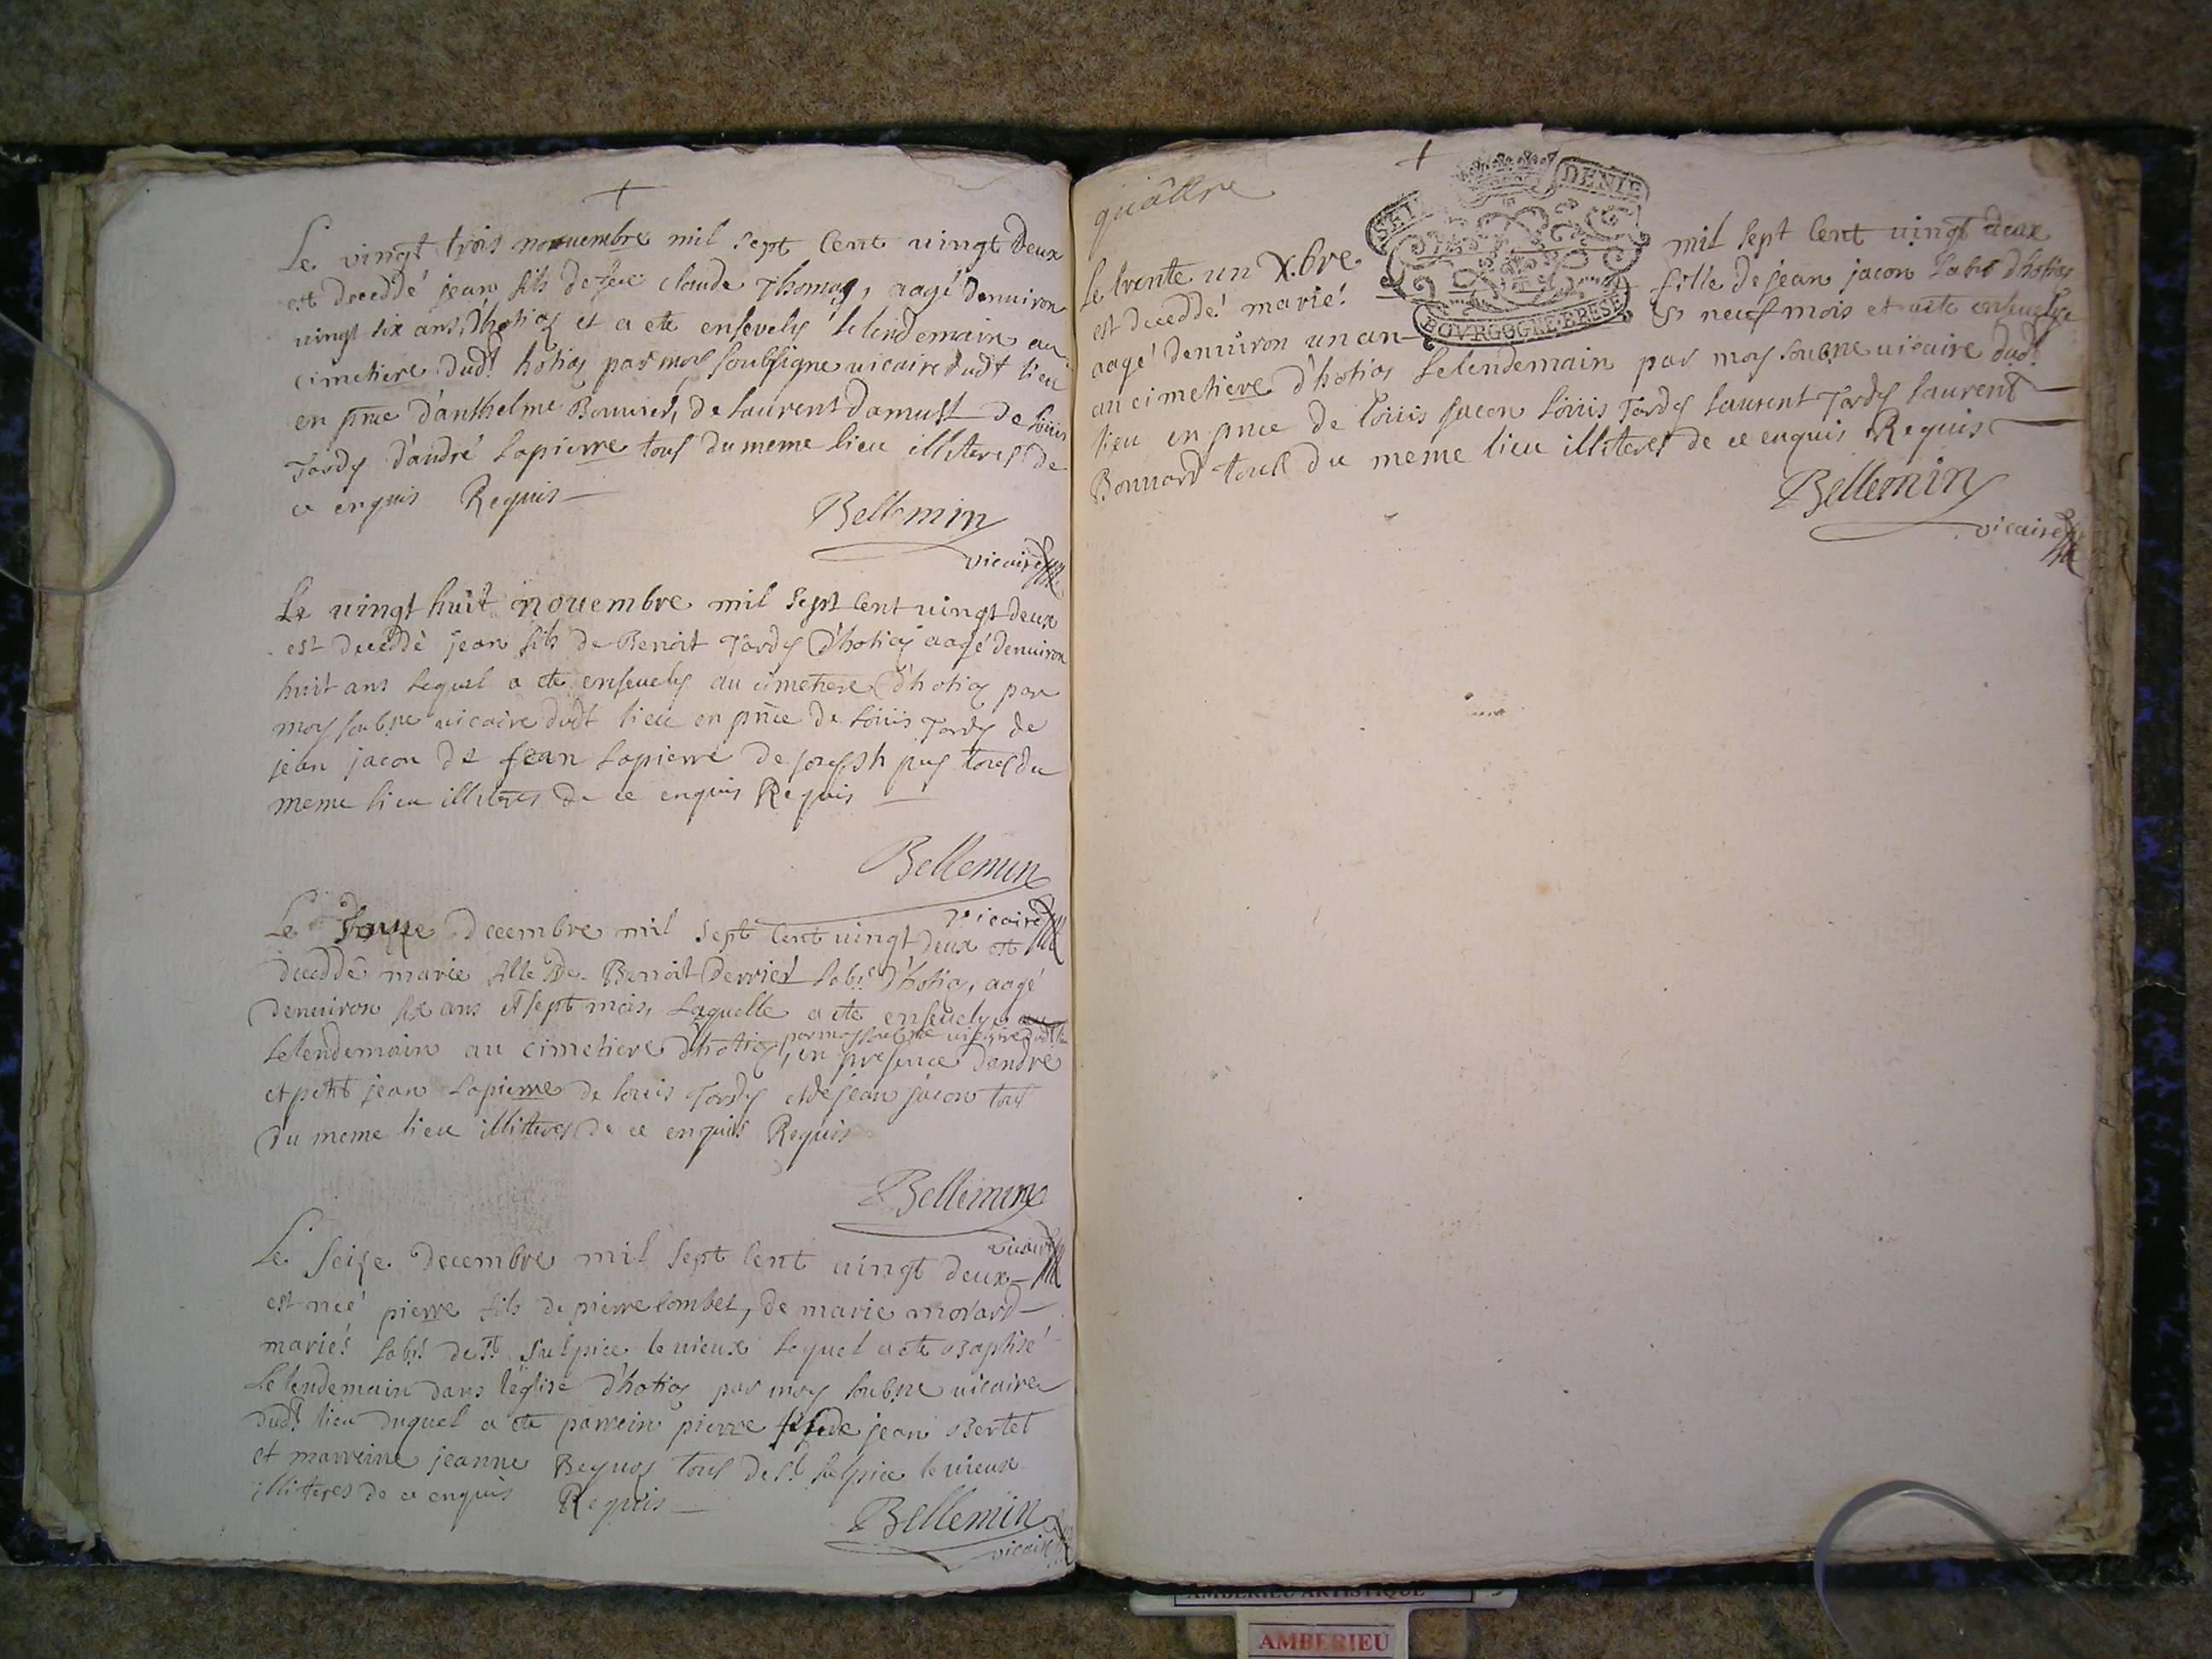 Le vingt trois novuembre mil sept Cent uingt Deux
est deceddé jean fils de feu claude Thomas, aagé denuiron
uingt six ans, d'hotias et a ete ensevely le lendemain au
cimetiere dudt hotias par moy soubsigne uicaire dudt lieu
en pnce d'anthelme Bonnard, de Laurent de Loüis
Tardy d'andré Lapierre tous du meme lieu illiteres de
ce enquis Requis
Bellemin
vicaire
Le uingt huit nouembre mil sept Cent uingt deux
est deceddé jean fils de Benoit Tardy d'hotias aagé denuiron
huit ans lequel a ete enseuely au cimetiere d'hotias par
moy soubne uicaire dudt lieu en pnce de Loüis Tardy de
jean jacon de jean Lapierre de joseph puy tous du
meme lieu illiteres de ce enquis Requis
Bellemin
vicaire
Le decembre mil sept Cent uingt deux est
deceddé marie fille de Benoit Derrier Labr d'hotias, aagé
denuiron six ans et sept mois, Laquelle a ete enseuelye
par moy soubne uicaire dudt lieu
Le lendemain au cimetiere d'hotias, en presence d'andre
et petit jean Lapierre de Louis Tardy et de jean jacon tous
du meme lieu illiteres de ce enquis Requis
Bellemin
vicaire
Le seize decembre mil sept Cent uingt deux
est neé pierre fils de pierre Combet, de marie morard
mariés Labrs de St Sulpice le uieux lequel a ete Baptisé
Le lendemain dans l'eglise d'hotias par moy soubne uicaire
dudt lieu duquel a ete parrein pierre fils de jean Bertet
et marreine jeanne Beguoy tous de St Sulpice le uieux
illiteres de ce enquis Requis
Bellemin
vicaire
quâttre
DENIE
BOVRGOGNE·BRESE
Le trente un X.bre mil sept Cent uingt deux
est deceddé marie fille de jean jacon Labr d'hotias
aagé denuiron un an & neuf mois et a ete enseuelye
au cimetiere d'hotias Le lendemain par moy soubne uicaire dudt
lieu en pnce de Loüis jacon Loüis Tardy Laurent Tardy Laurent
Bonnard tous du meme lieu illiteres de ce enquis Requis
Bellemin
vicaire
AMBERIEU ARTISTIQUE
AMBERIEU